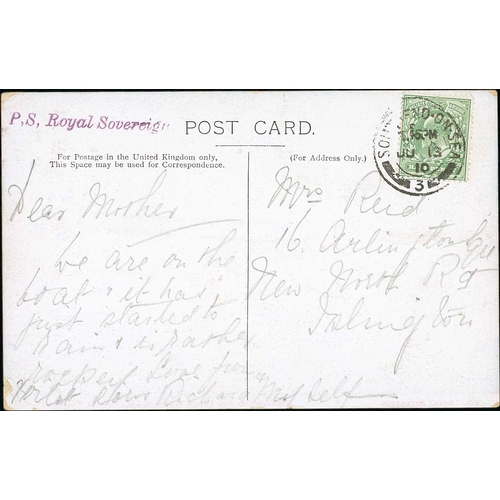 P.S, Royal Sovereign
POST CARD.
For Postage in the United Kingdom only,
This Space may be used for Correspondence.
(For Address Only.)
SOUTHEND-ON-SEA
JU 13
10
3
Dear Mother
We are on the
boat & it has
just started to
rain & is rather
Love from
Richard Myself
Mrs Reid
16. Arlington Sq
New North Rd
Islington